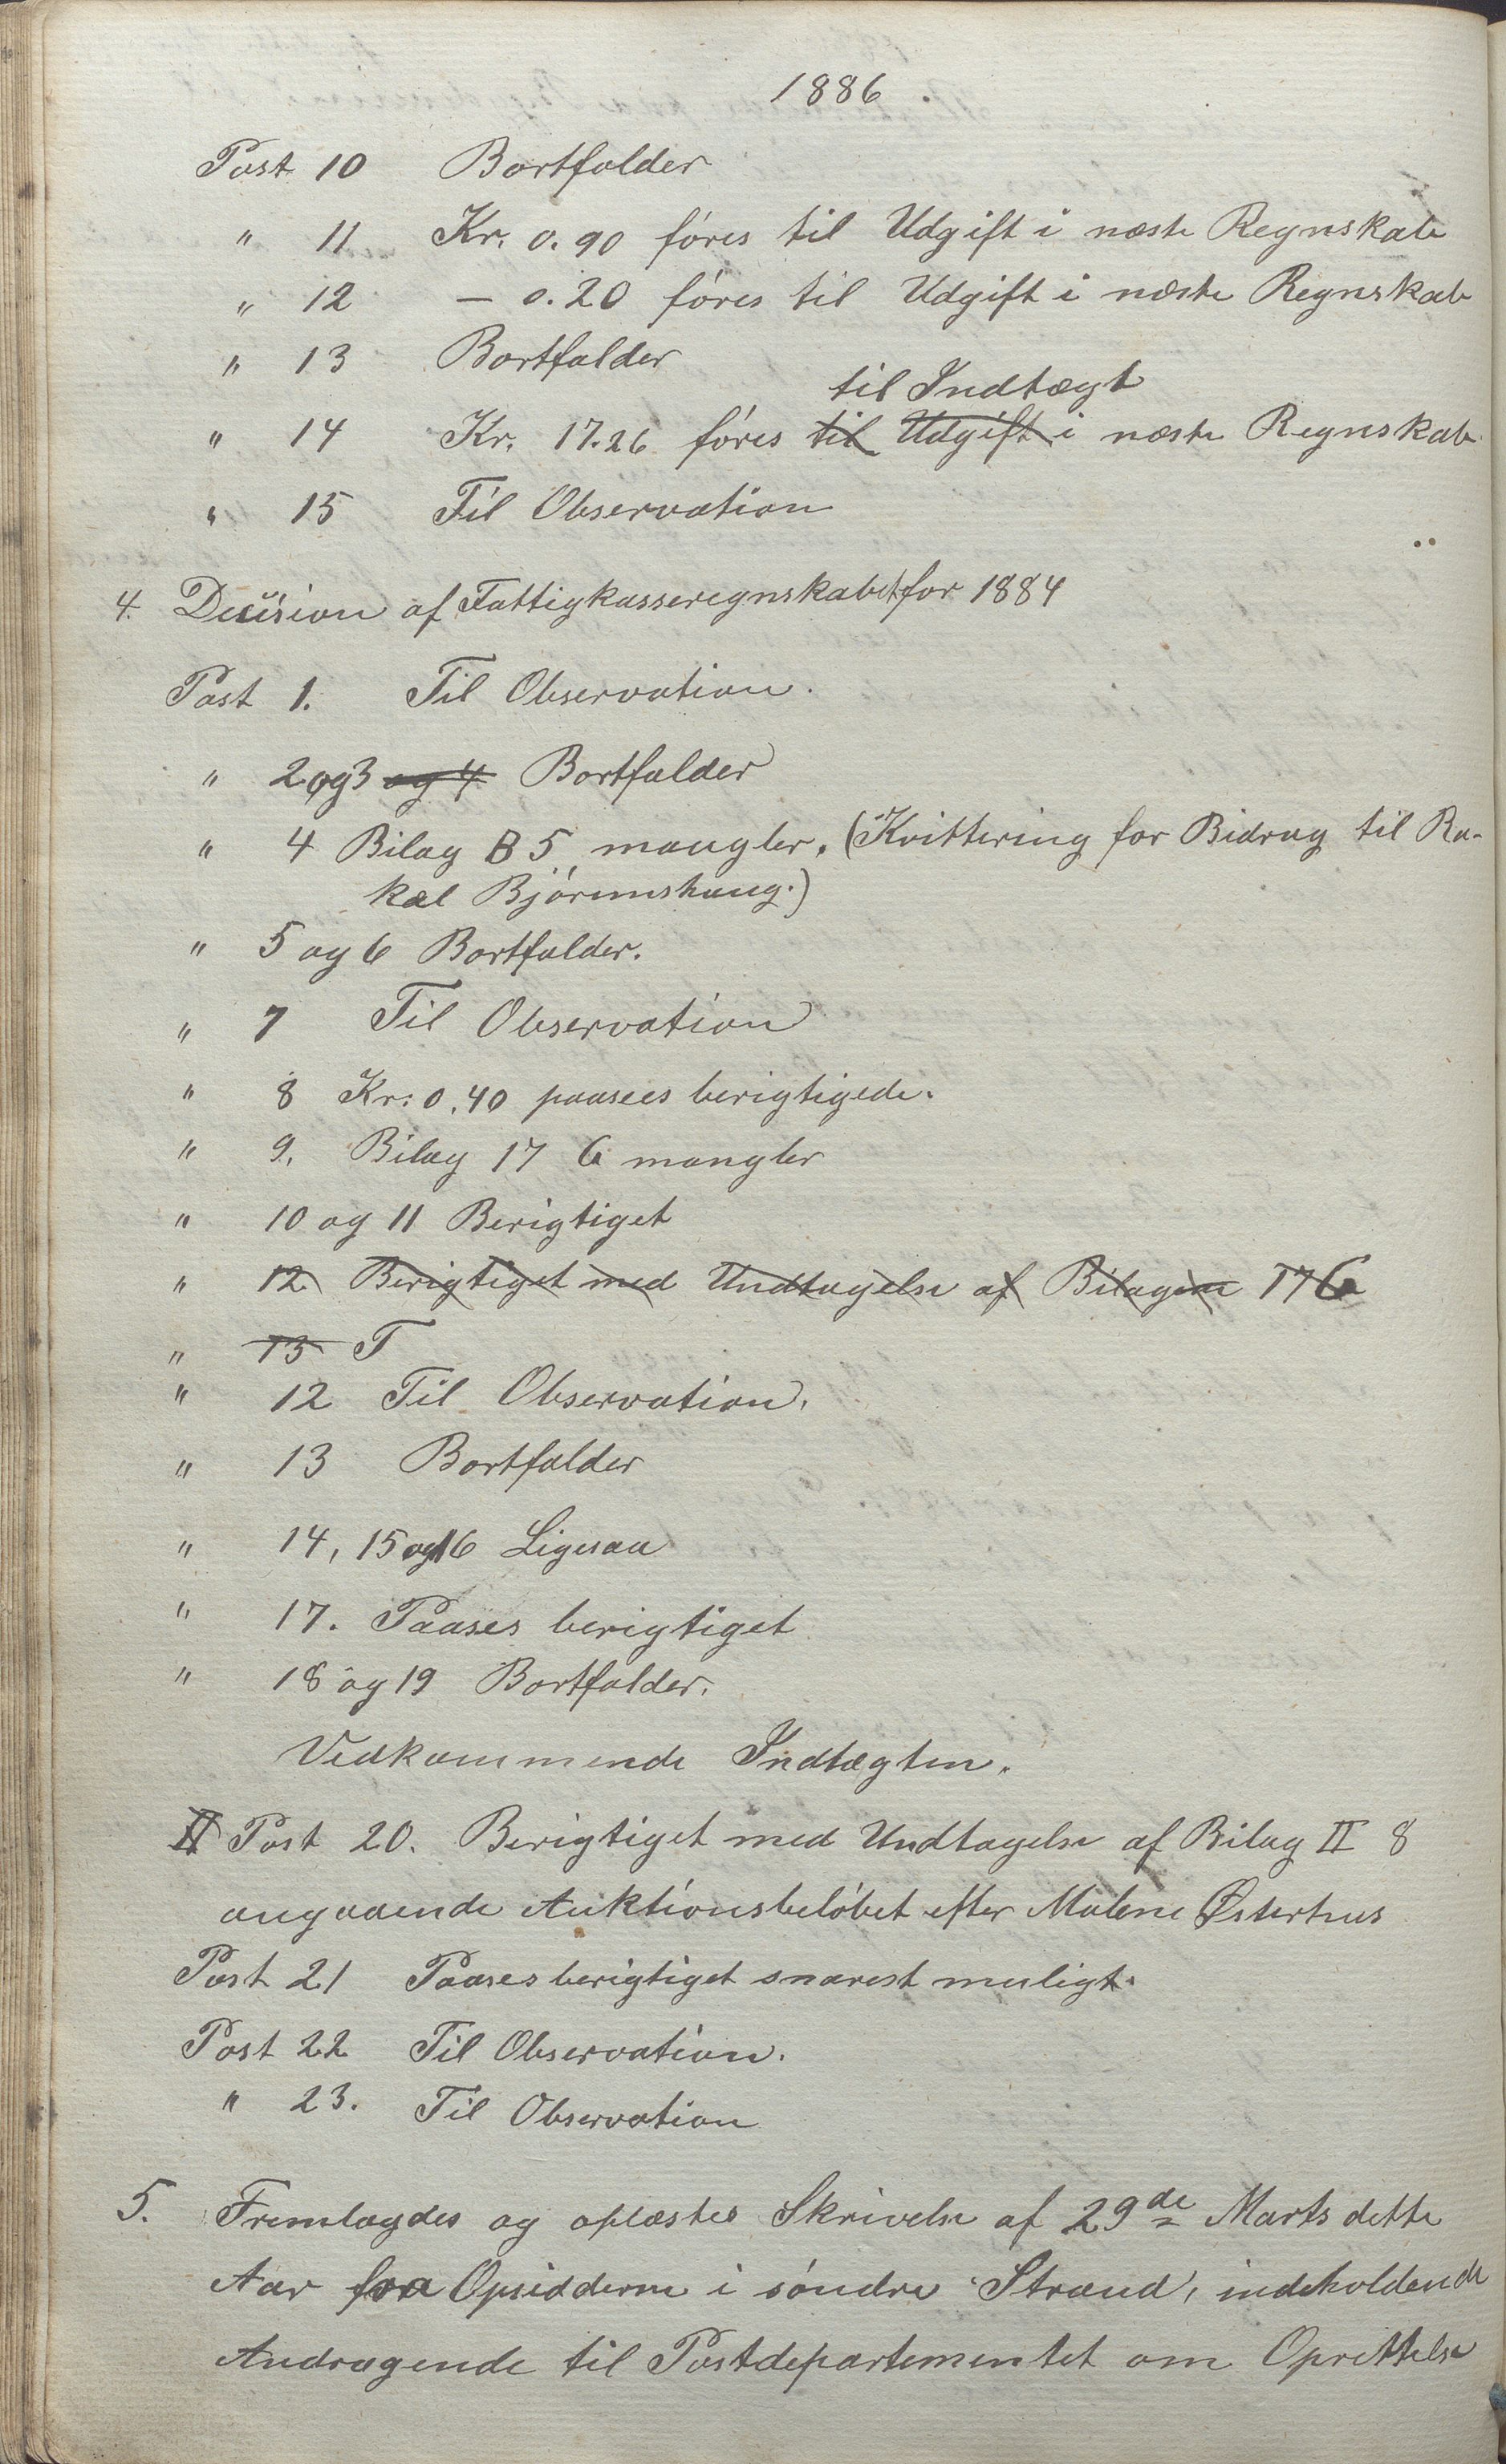 1886
Post 10 Bortfalder
" 11 Kr. 0.90 føres til Udgift i næste Regnskab
" 12 – 0.20 føres til Udgift i næste Regnskab
" 13 Bortfalder
til Indtægt
" 14 Kr. 17.26 føres til Udgift i næste Regnskab
" 15 Til Observation
4. Decision af Fattigkasseregnskabet for 1884
Post 1. Til Observation.
" 2 og 3 og 4 Bortfalder
" 4 Bilag B 5 mangler. (Kvittering for Bidrag til Ra-
kel Bjørunshaug.)
" 5 og 6 Bortfalder.
" 7 Til Observation
" 8 Kr. 0.40 paasees berigtigede.
" 9. Bilag 17 G mangler
" 10 og 11 Berigtiget
" 12 Berigtiget med Undtagelse af Bilagene 17 G
" 13 T
" 12 Til Observation.
" 13 Bortfalder
" 14, 15 og 16 Ligesaa
" 17. Paases berigtiget
" 18 og 19 Bortfalder.
Vedkommende Indtægten.
II Post 20. Berigtiget med Undtagelse af Bilag II 8
angaaende Auktionsbeløbet efter Malene Østerhus
Post 21 Paases berigtiget snarest muligt.
Post 22 Til Observation.
" 23. Til Observation
5. Fremlagdes og oplæstes Skrivelse af 29de Marts dette
Aar fra Opsidderne i søndre Strand, indeholdende
Andragende til Postdepartementet om Oprettelse